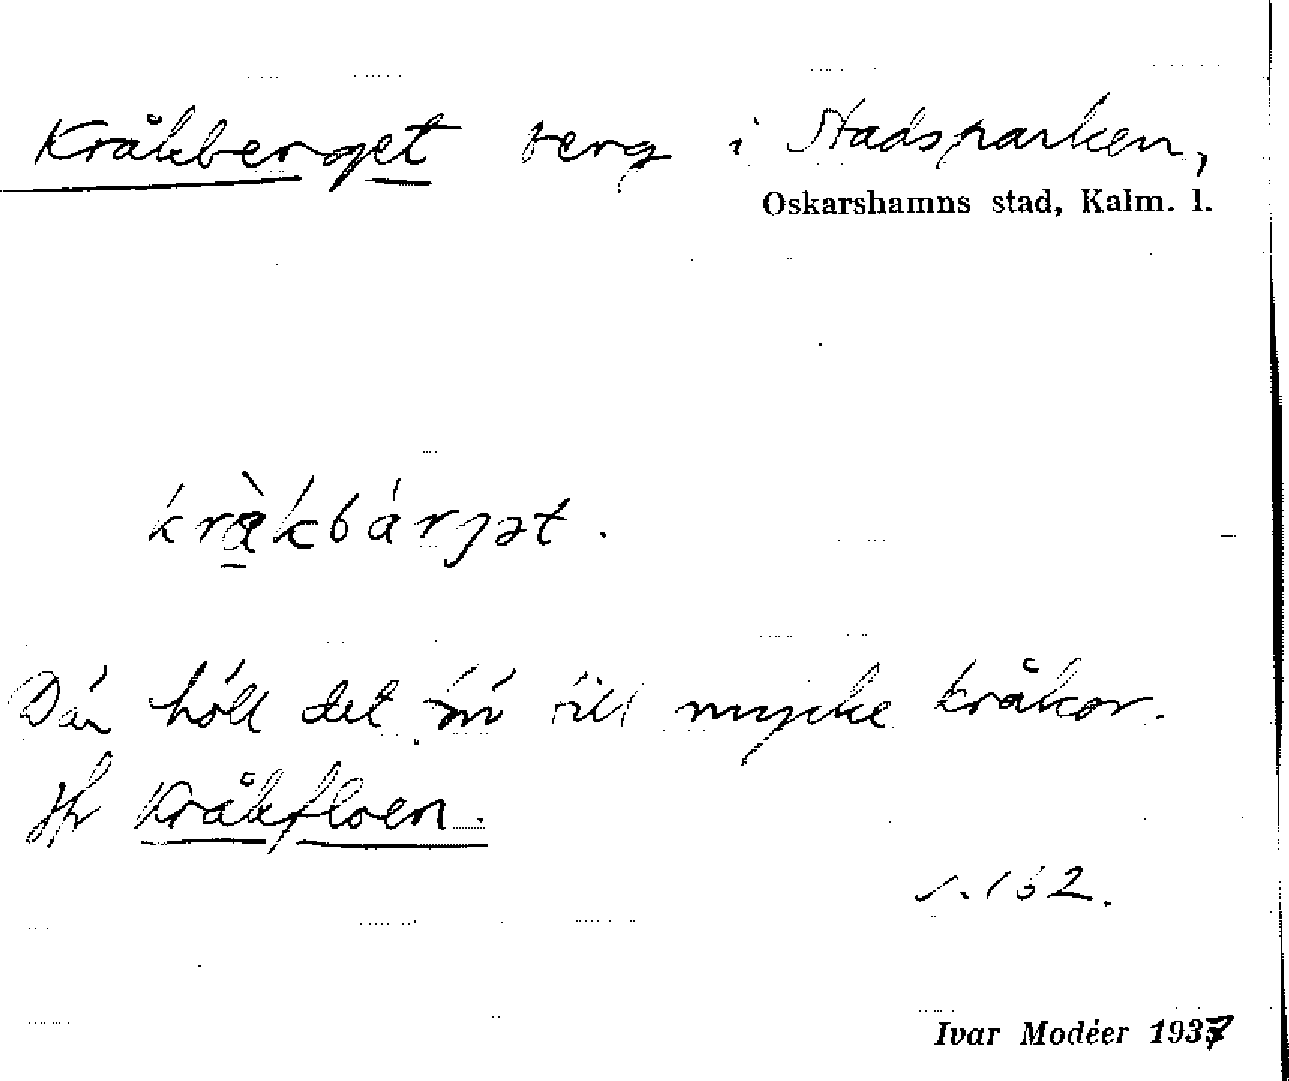 Kråkberget berg i Stadsparken,
Oskarshamns stad, Kalm. l.
kràkbárjət.
Där höll det till mycke kråkor.
Jfr Kråkfloen.
s. 162.
Ivar Modéer 1937